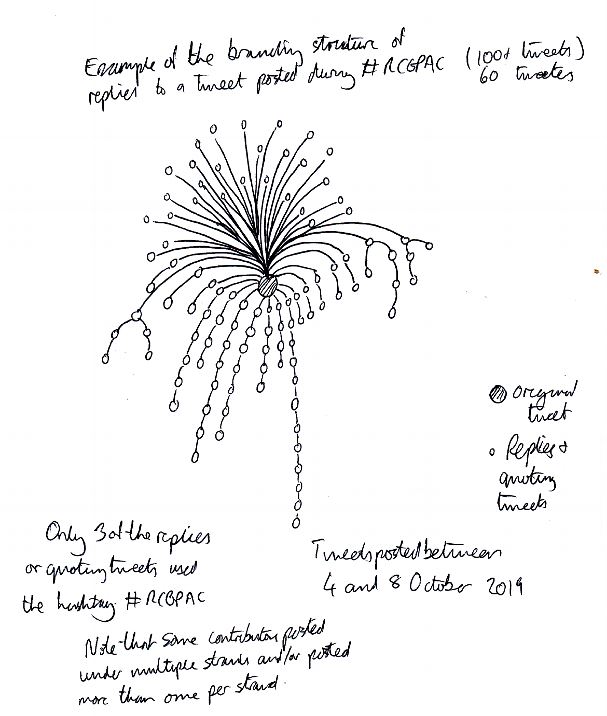 Example of the branching structure of
replies to a tweet posted during #RCGPAC (100+ tweets)
60 tweeters
original
tweet
Replies &
quoting
tweets
Only 3 of the replies
or quoting tweets used
the hashtag #RCGPAC
Tweets posted between
4 and 8 October 2019
Note that some contributors posted
under multiple strands and/or posted
more than one per strand.